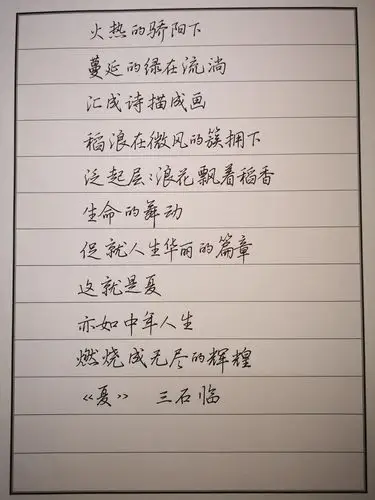 火热的骄阳下
蔓延的绿在流淌
汇成诗描成画
稻浪在微风的簇拥下
泛起层:浪花飘着稻香
生命的舞动
促就人生华丽的篇章
这就是夏
亦如中年人生
燃烧成无尽的辉煌
《夏》 三石临